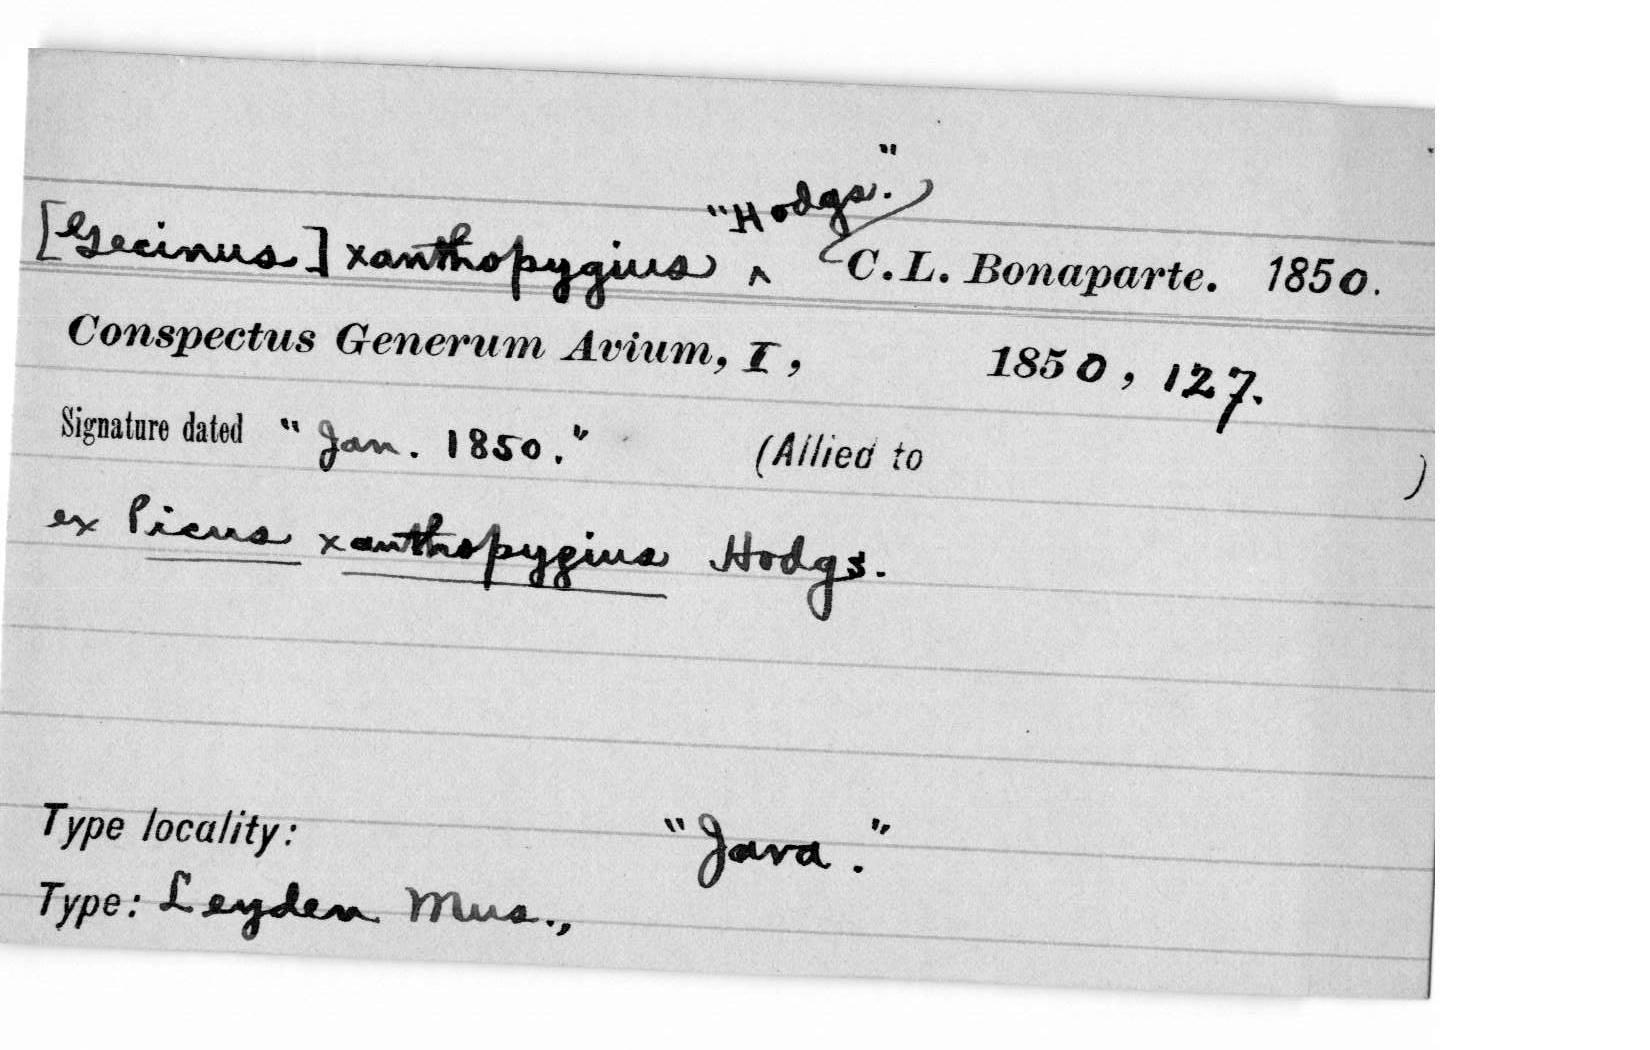 [Gecinus] xanthopygius ^ "Hodgs." C.L. Bonaparte. 1850.
Conspectus Generum Avium, I, 1850, 127.
Signature dated "Jan. 1850." (Allied to )
ex Picus xanthopygius Hodgs.
Type locality: "Java."
Type: Leyden Mus.,